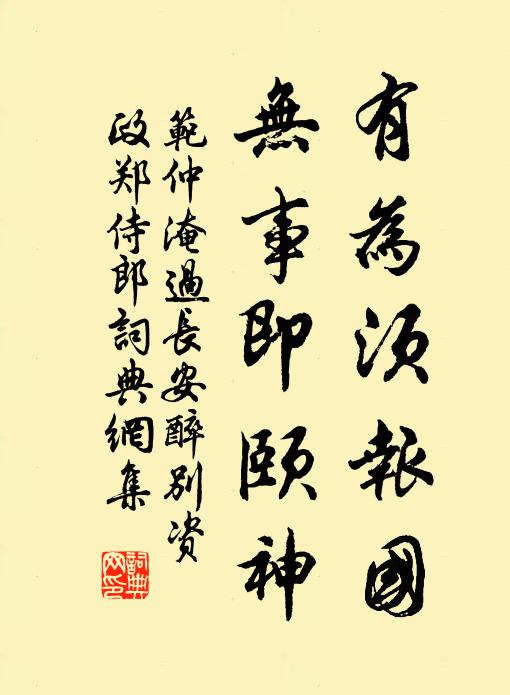 有為須報國
無事即頤神
範仲淹過長安醉別资
政郑侍郎詞典網集
詞典網印